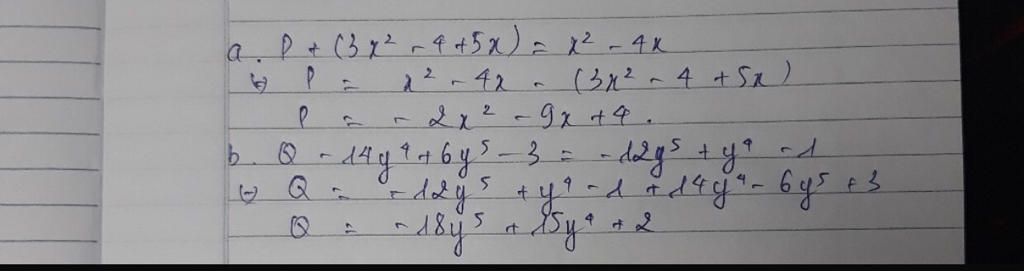 a. P + (3x² - 4 + 5x) = x² - 4x
(=) P = x² - 4x - (3x² - 4 + 5x)
P = - 2x² - 9x + 4.
b. Q - 14y⁴ + 6y⁵ - 3 = -12y⁵ + y⁴ - 1
(=) Q = -12y⁵ + y⁴ - 1 + 14y⁴ - 6y⁵ + 3
Q = -18y⁵ + 15y⁴ + 2